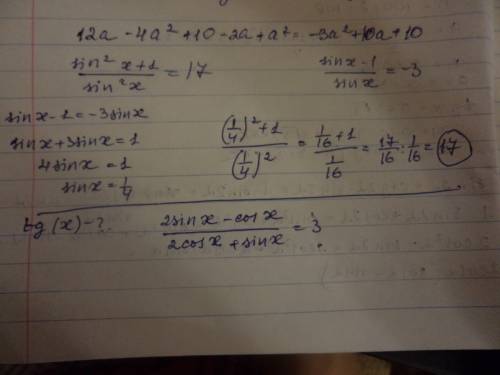 12a - 4a² + 10 - 2a + a² = -3a² + 10a + 10
(sin²x + 1)/(sin²x) = 17
(sinx - 1)/(sinx) = -3
sinx - 1 = -3sinx
sinx + 3sinx = 1
4sinx = 1
sinx = 1/4
((1/4)² + 1)/((1/4)²) = (1/16 + 1)/(1/16) = 17/16 : 1/16 = 17
tg(x) - ? (2sinx - cosx)/(2cosx + sinx) = 3